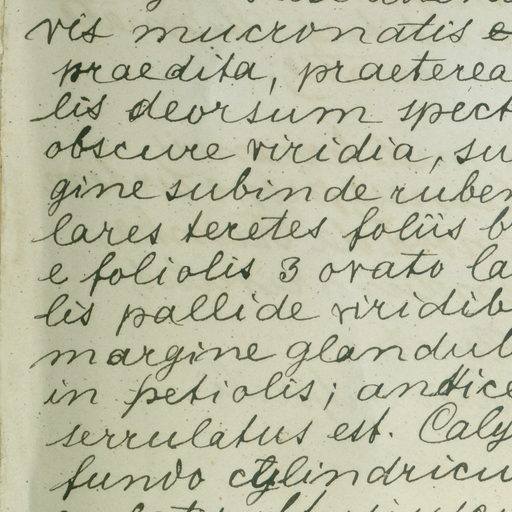 vis mucronatis
praedita, praeterea
lis deorsum spect
obscure viridia, su
gine subinde ruben
lares teretes foliis b
e foliolis 3 ovato la
lis pallide viridib
margine glandul
in petiolis; antice
serrulatus est. Caly
fundo cylindricu